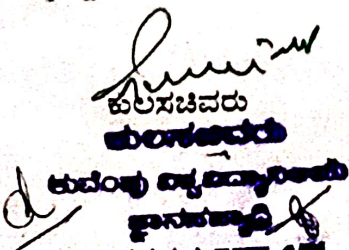 ಕುಲಸಚಿವರು
ಕುಲಸಚಿವರು
ಕುವೆಂಪು ವಿಶ್ವವಿದ್ಯಾನಿಲಯ
ಜ್ಞಾನಸಹ್ಯಾದ್ರಿ